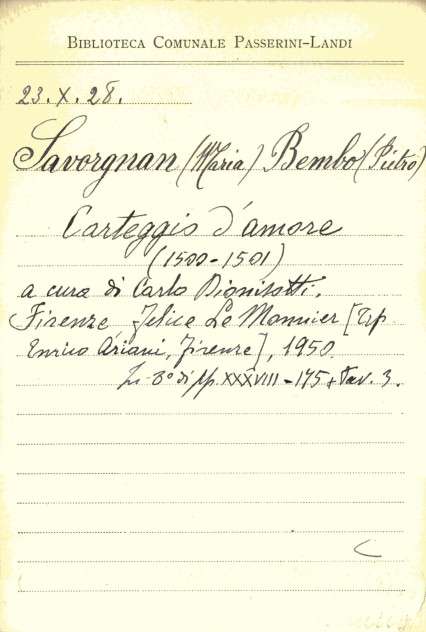 BIBLIOTECA COMUNALE PASSERINI-LANDI
23. X. 28.
Savorgnan (Maria) Bembo (Pietro)
Carteggio d'amore
(1500-1501)
a cura di Carlo Dionisotti.
Firenze, Felice Le Monnier [Tip.
Enrico Ariani, Firenze], 1950.
In-8° di pp. XXXVIII-175 + tav. 3.